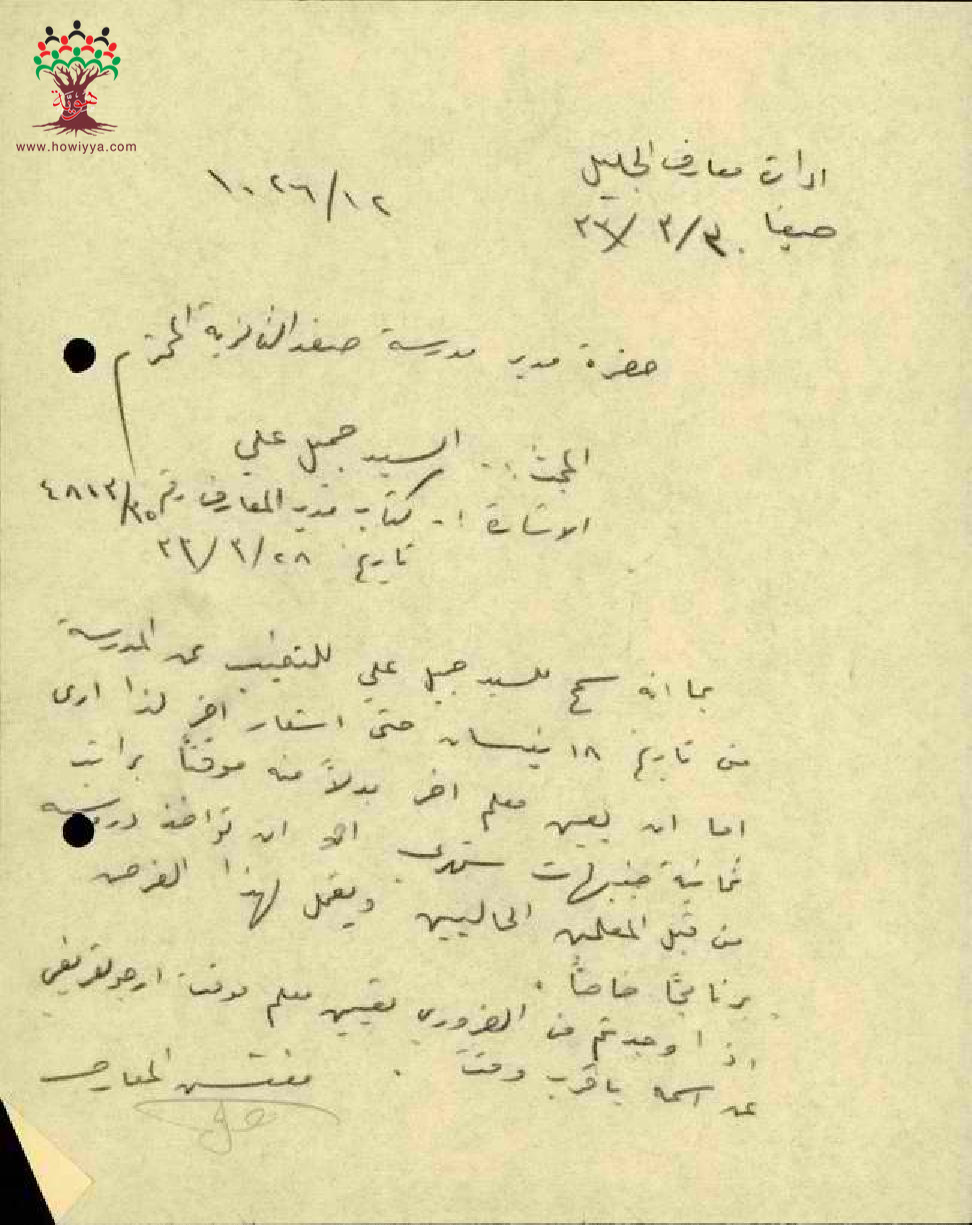 هوية
www.howiyya.com
ادارة معارف الجليل
١٠٢٦/١٢
حيفا ٣٠/٣/٣٣
حضرة مدير مدرسة صفد الثانوية المحترم
المبحث :- السيد جميل علي
الاشارة :- كتاب مدير المعارف رقم
تاريخ ٢٨/٣/٣٣
بما انه سمح للسيد جميل علي للتغيب عن المدرسة
من تاريخ ١٨ نيسان حتى اشعار آخر لذا ارى
اما ان يعين معلم اخر بدلاً منه موقتاً براتب
ثمانية جنيهات شهري او ان تؤخذ دروسه
من قبل المعلمين الحاليين ويعمل لهذا الغرض
برنامجاً خاصاً .
اذا وجدتم من الضروري تعيين معلم موقت ارجو تعريفي
عن اسمه باقرب وقت . مفتش المعارف